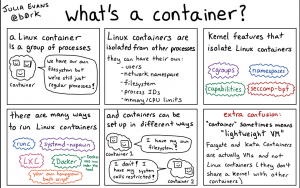 JULIA EVANS
@b0rk
what's a container?
a Linux container
is a group of processes
we have our own
filesystem but
we're still just
regular processes!
container
Linux containers are
isolated from other processes
they can have their own:
- users
- network namespace
- filesystem
- process IDs
- memory/CPU limits
Kernel features that
isolate Linux containers
cgroups
namespaces
capabilities
seccomp-bpf
there are many ways
to run Linux containers
runC
systemd-nspawn
LXC
Docker
your own homegrown
bash script
and containers can be
set up in different ways
I have my own
filesystem!
container 1
I don't! I
have my system
calls restricted!
container 2
extra confusion:
"container" sometimes means
"lightweight VM"
Fargate and Kata Containers
are actually VMs and not
Linux containers (they don't
share a kernel with other
containers)